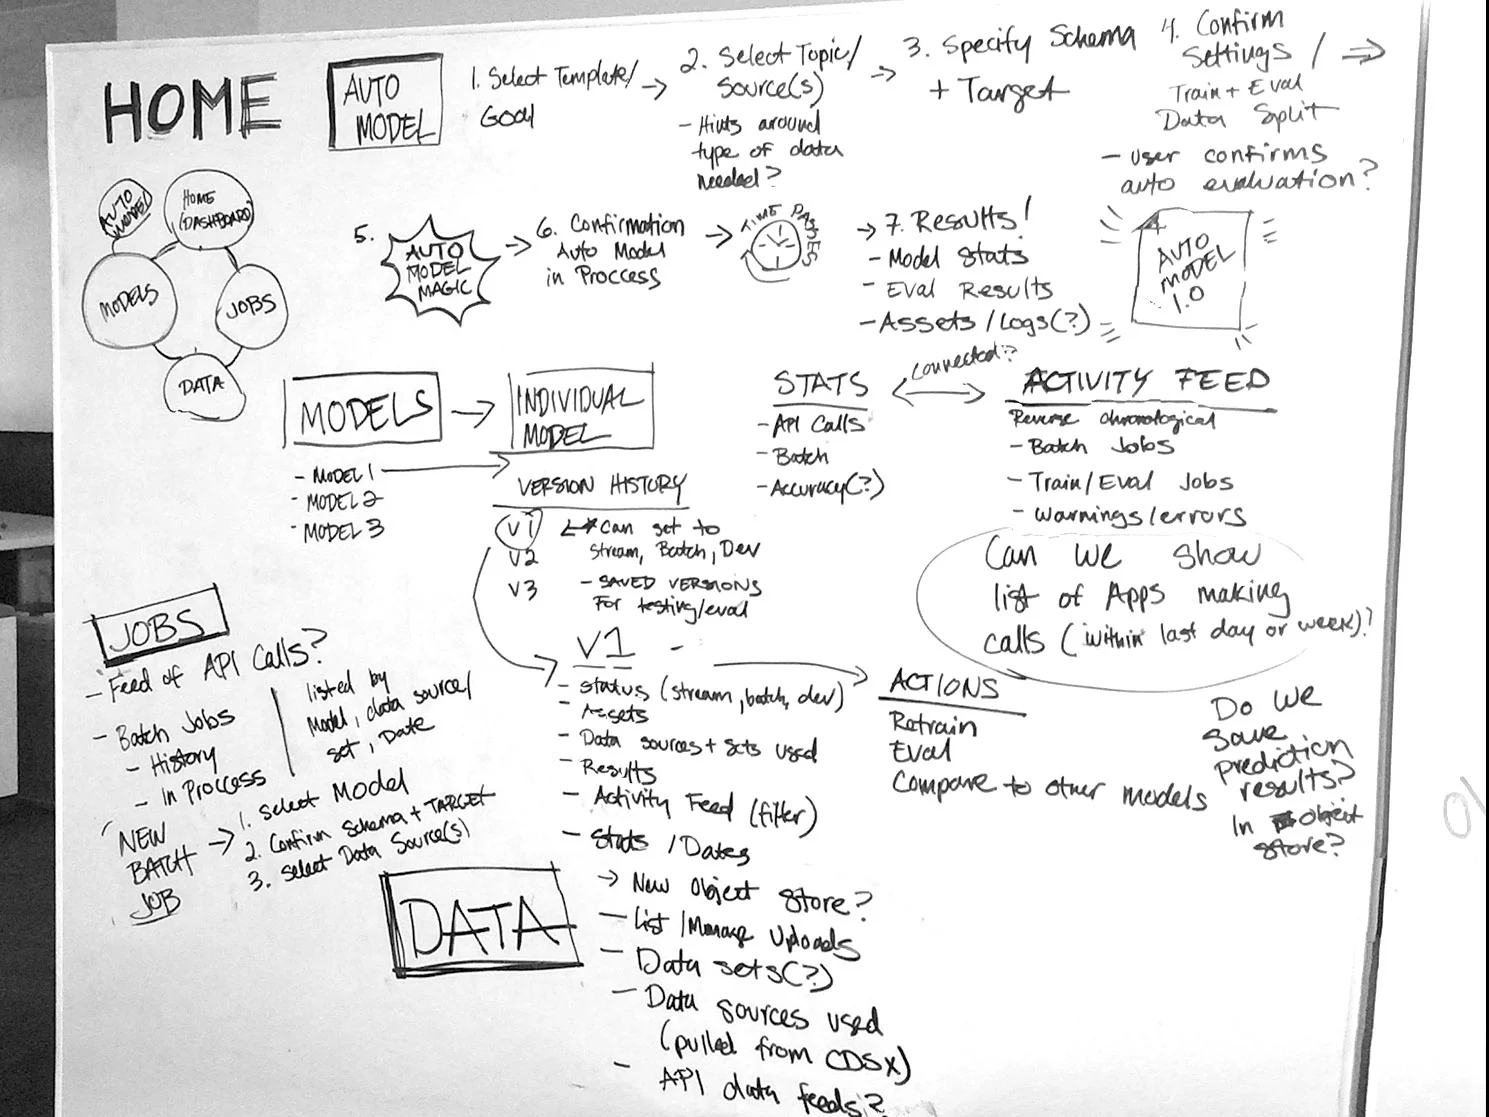 HOME
AUTO
MODEL
1. Select Template/
Goal
2. Select Topic/
Source(s)
- Hints around
type of data
needed?
3. Specify Schema
+ Target
4. Confirm
Settings /
Train + Eval
Data Split
- User confirms
auto evaluation?
AUTO
MODEL
HOME
(DASHBOARD)
MODELS
JOBS
DATA
5.
AUTO
MODEL
MAGIC
6. Confirmation
Auto Model
in Proccess
TIME PASSES
7. Results!
- Model Stats
- Eval Results
- Assets/Logs(?)
AUTO
MODEL
1.0
MODELS
- MODEL 1
- MODEL 2
- MODEL 3
INDIVIDUAL
MODEL
VERSION HISTORY
V1
V2
V3
* Can set to
Stream, Batch, Dev
- SAVED VERSIONS
For testing/eval
STATS
- API Calls
- Batch
- Accuracy(?)
connected?
ACTIVITY FEED
Reverse chronological
- Batch Jobs
- Train/Eval Jobs
- Warnings/errors
Can we show
list of Apps making
calls (within last day or week)?
JOBS
- Feed of API Calls?
- Batch Jobs
- History
- In Proccess
listed by
Model, data source/
set, Date
NEW
BATCH
JOB
1. Select Model
2. Confirm Schema + TARGET
3. Select Data Source(s)
V1 -
- Status (stream, batch, dev)
- Assets
- Data sources + sets used
- Results
- Activity Feed (filter)
- Stats / Dates
ACTIONS
Retrain
Eval
Compare to other models
Do We
Save
prediction
results?
In Object
store?
DATA
→ New Object Store?
- List / Manage Uploads
- Data sets(?)
- Data sources used
(pulled from CDSX)
- API data feeds?